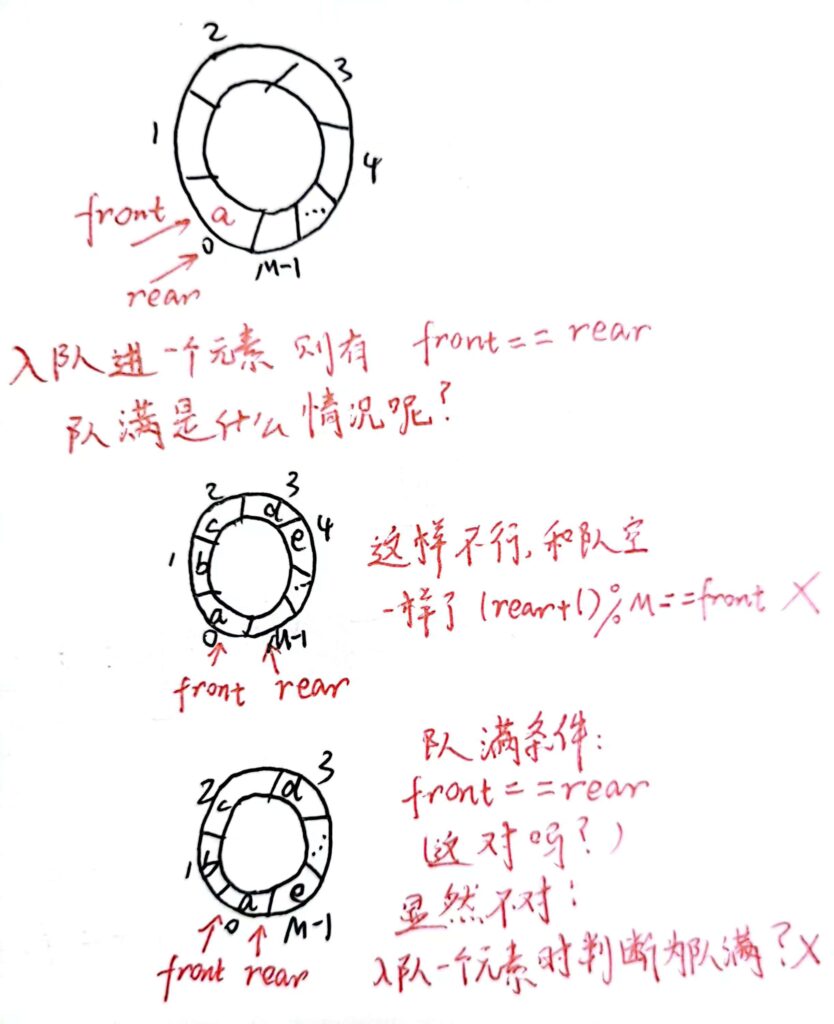 2
3
1
4
front
a
...
0
M-1
rear
入队进一个元素 则有 front == rear
队满是什么情况呢?
2 3
c d 4
1 b e
...
a
0 M-1
front rear
这样不行,和队空
一样了 (rear+1)%M==front ×
2 3
c d
1 b ...
a e
0 M-1
front rear
队满条件:
front == rear
(这对吗?)
显然不对:
入队一个元素时判断为队满?×